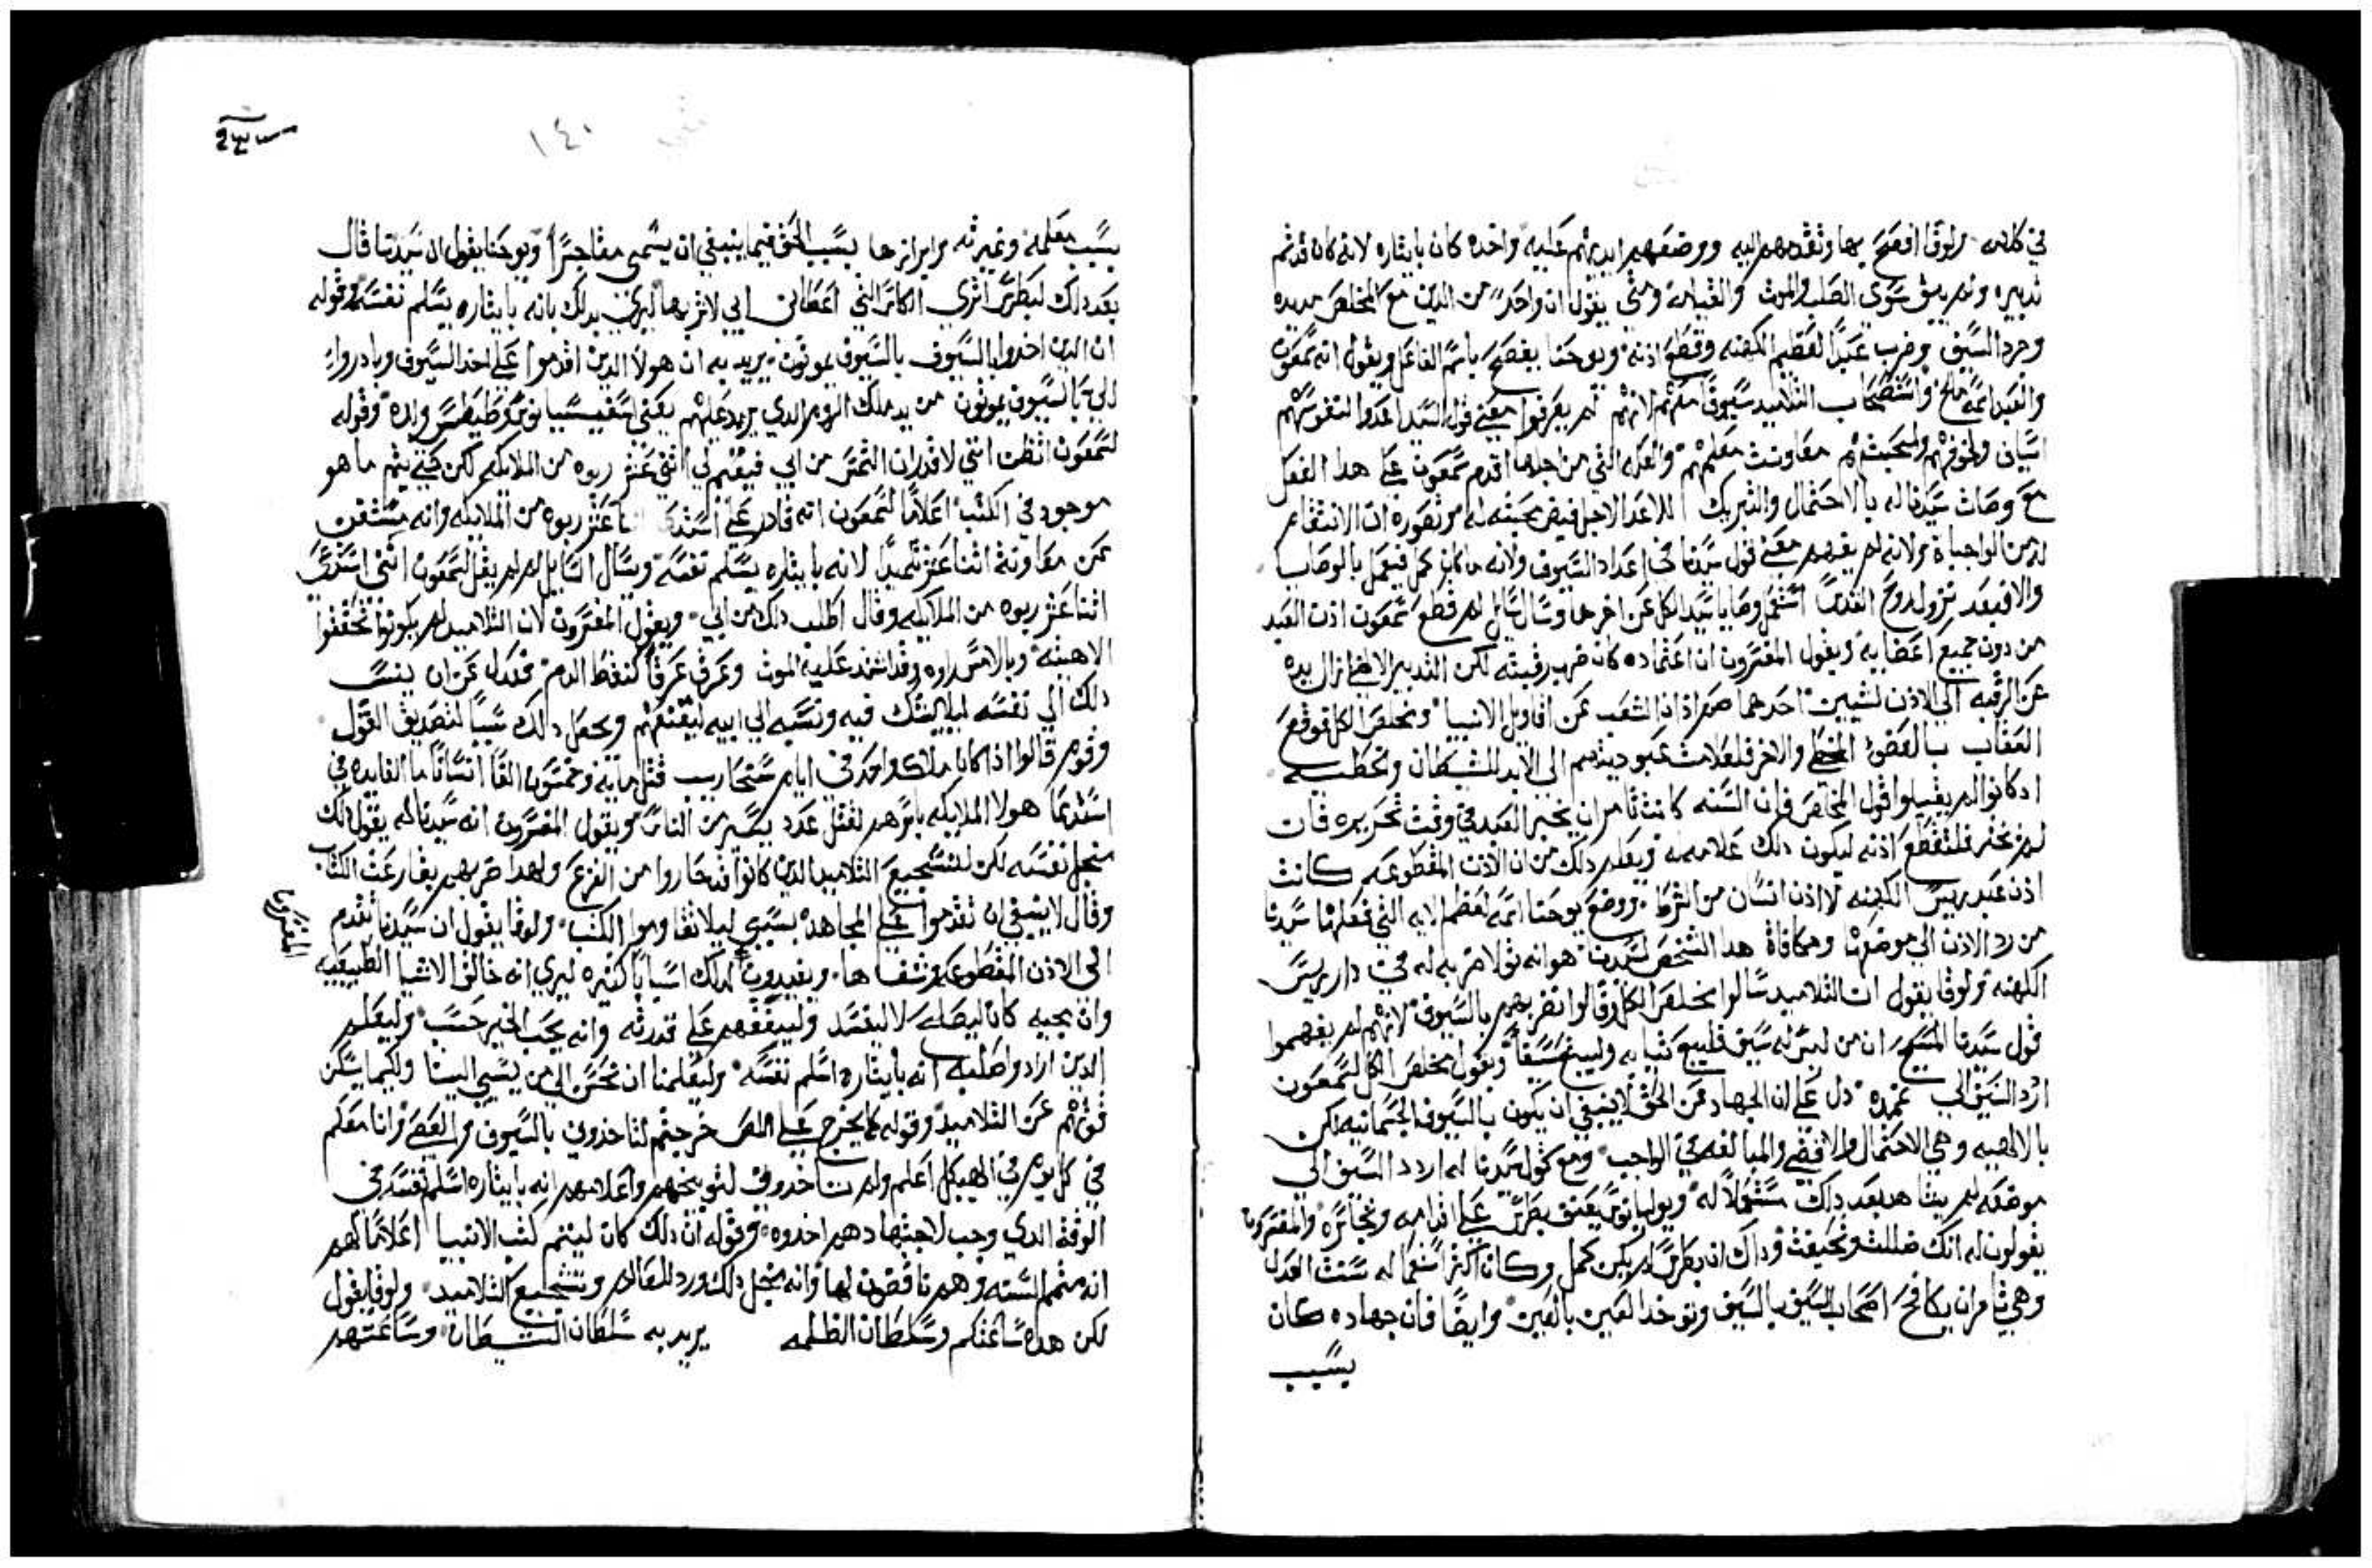 في كلامه ولوقا افصح بها وتقدمهم اليه ووضعهم ايديهم عليه واخده كان بايثاره لانه كان قد تم
تدبيره ولم يبق سوى الصلب والموت والقيامة ومتى يقول ان واحدًا من الدين مع المخلص مد يده
وجرد السيف وضرب عبد لعظيم الكهنه وقطع اذنه ويوحنا يفصح باسم الفاعل ويقول انه شمعون
والعبد اسمه ملخ واستصحاب التلاميد سيوفًا معهم لانهم لم يعرفوا معنى قول السيد اعدوا لنفوسكم
اسيافا ولخوفهم ولمحبتهم معاونت معلمهم والعله التي من اجلها اقدم شمعون على هدا الفعل
مع وصات سيدنا له بالاحتمال والتبريك للاعدا لاجل فيض محبته له وتصوره ان الانتقام
له من الواجبات ولانه لم يفهم معنى قول سيدنا في اعداد السيوف ولانه ما كان كمل فيعمل بالوصايا
والا فبعد نزول روح القدس استعمل وصايا سيد الكل عن اخرها وسال سايل لم قطع شمعون اذن العبد
من دون جميع اعضايه ويقول المفسرون ان اعتماده كان ضرب رقبته لكن التدبير الالهي ازال يده
عن الرقبه الى الاذن لشيين احدهما صم اذان الشعب عن اقاويل الانبيا ومخلص الكل فوقع
العقاب بالعضو المخطي والاخر فلعلامت عبوديتهم الى الابد للشيطان وللخطيه
اد كانوا لم يقبلوا قول المخلص فان السنه كانت تامر ان يخير العبد في وقت تحريره فان
لم يختر فلتقطع اذنه ليكون دلك علامه ويعلم دلك من ان الاذن المقطوعه كانت
اذن عبد ريس الكهنه لا اذن انسان من الشرط ووضع يوحنا اسمه لعظم الايه التي فعلها سيدنا
من رد الاذن الى موضعها ومكافاة هدا الشخص لسيدنا هو انه تولا ضربه له في دار ريس
الكهنه ولوقا يقول ان التلاميد سالوا مخلص الكل وقالوا نضربهم بالسيوف لانهم لم يفهموا
قول سيدنا المسيح ان من ليس له سيف فليبيع ثيابه وليبتع سيفًا ويقول مخلص الكل لشمعون
اردد السيف الى غمده دل على ان الجهاد عن الحق لا ينبغي ان يكون بالسيوف الجسمانيه لكن
بالالهيه وهي الاحتمال والمبالغه في الواجب ومع قول سيدنا له اردد السيف الى
موضعه لم يشاهد بعد دلك مستعملاً له ويوليانوس يعنف بطرس على اقدامه وتجاسره والمفسرون
يقولون له انك ضللت وداك ان بطرس لم يكن كمل وكان اكثر استعماله سنت العدل
وهي تامر ان يكافح اصحاب السيف بالسيف وتوخد العين بالعين وايضًا فان جهاده كان
بسبب
١٤٠
بسبب معلمه وغيرته وابرازها بسبب الحق فيما ينبغي ان يسمى متجاسرًا ويوحنا يقول ان سيدنا قال
بعد دلك لبطرس اترى الكاس التي اعطاني ابي لا اشربها ليري بدلك بانه بايثاره يسلم نفسه وقوله
ان الدين اخدوا بالسيوف بالسيوف يموتون يريد به ان هولا الدين اقدموا على اخد السيوف وبادروا
الي بالسيوف يموتون من يد ملك الروم الدي يريد عليهم يعني اسفسيانوس وطيطس ولده وقوله
لشمعون اتظن انني لا اقدر ان التمس من ابي فيقيم لي اثني عشر ربوه من الملايكه لكن كي يتم ما هو
موجود في الكتب اعلامًا لشمعون انه قادر على عشر ربوه من الملايكه وانه مستغن
عن معاونة اثنا عشر تلميدًا لانه بايثاره يسلم نفسه وسال السايل لم لم يقل لشمعون انني استدعي
اثنا عشر ربوه من الملايكه وقال اطلب دلك من ابي ويقول المفسرون لان التلاميد لم يكونوا تحققوا
الاهيته وبالامس راوه وقد اشتد عليه الموت وعرق عرقًا كنقط الدم فعدل عن ان ينسب
دلك الى نفسه ليلا يشك فيه ونسبه الى ابيه ليقنعهم ويجعل دلك سببًا لتصديق القول
وقوم قالوا اذا كان ملاك واحد في ايام سنحاريب قتل مايه وخمسون الفًا انسانًا ما الفايده في
استدعا هولا الملايكه باسرهم لقتل عدد يسير من الناس ويقول المفسرون انه سيدنا لم يقول دلك
من اجل نفسه لكن لتشجيع التلاميد الدين كانوا قد حاروا من الفزع ولهدا ضربهم بقارعت الكتاب
وقال لا ينبغي ان تقدموا على المجاهده بسببي ليلا تقاوموا الكتب ولوقا يقول ان سيدنا تقدم
الى الاذن المقطوعه وشفاها ويفيدون لدلك اسبابًا كثيره ليري انه خالق الاشيا الطبيعيه
المفسرون
وان مجيه كان ليصلح لا ليفسد ولييقفهم على قدرته وانه يحب الخير حسب وليعلم
الدين ارادوا صلبه انه بايثاره اسلم نفسه وليعلمنا ان نحسن الى من يسي الينا ولكيما يسكن
عن التلاميد وقوله كما يخرج على اللص خرجتم لتاخدوني بالسيوف والعصي وانا معكم
في كل يوم في الهيكل اعلم ولم تاخدوني لتوبيخهم واعلامهم انه بايثاره اسلم نفسه في
الوقت الدي وجب لا جتهادهم اخدوه وقوله ان دلك كان ليتم كتب الانبيا اعلامًا لهم
انه متمم السنه وهم ناقضون لها وانه من اجل دلك ورد للعالم وتشجيع التلاميد ولوقا يقول
لكن هده ساعتكم وسلطان الظلمه يريد به سلطان الشيطان وساعتهم